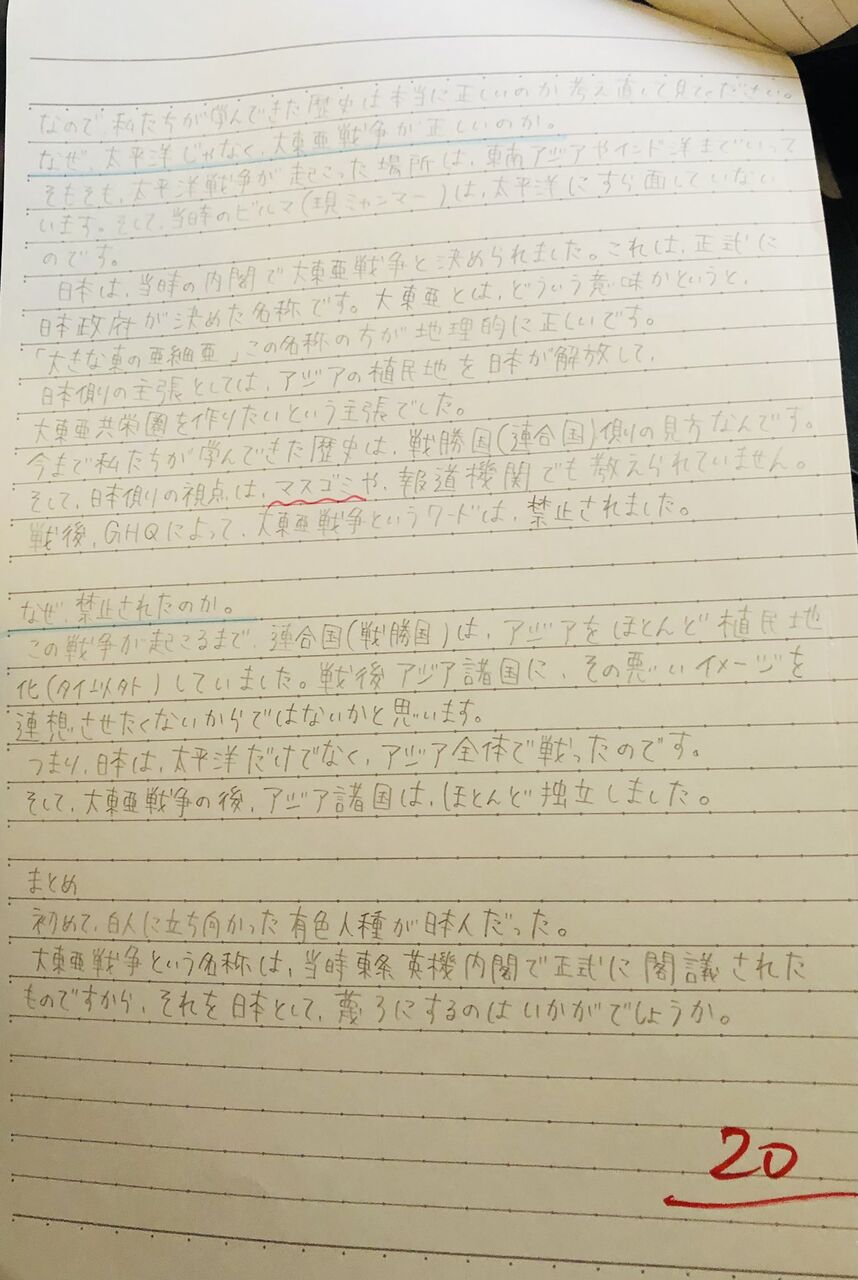 なので、私たちが学んできた歴史は本当に正しいのか考え直して見てください。
なぜ、太平洋じゃなく、大東亜戦争が正しいのか。
そもそも、太平洋戦争が起こった場所は、東南アジアやインド洋までいって
います。そして、当時のビルマ(現ミャンマー)は、太平洋にすら面していない
のです。
日本は、当時の内閣で大東亜戦争と決められました。これは、正式に
日本政府が決めた名称です。大東亜とは、どういう意味かというと、
「大きな東の亜細亜」この名称の方が地理的に正しいです。
日本側の主張としては、アジアの植民地を日本が解放して、
大東亜共栄圏を作りたいという主張でした。
今まで私たちが学んできた歴史は、戦勝国(連合国)側の見方なんです。
そして、日本側の視点は、マスゴミや、報道機関でも教えられていません。
戦後、GHQによって、大東亜戦争というワードは、禁止されました。
なぜ、禁止されたのか。
この戦争が起こるまで、連合国(戦勝国)は、アジアをほとんど植民地
化(タイ以外)していました。戦後アジア諸国に、その悪いイメージを
連想させたくないからではないかと思います。
つまり、日本は、太平洋だけでなく、アジア全体で戦ったのです。
そして、大東亜戦争の後、アジア諸国は、ほとんど独立しました。
まとめ
初めて、白人に立ち向かった有色人種が日本人だった。
大東亜戦争という名称は、当時東条英機内閣で正式に閣議された
ものですから、それを日本として、蔑ろにするのはいかがでしょうか。
20